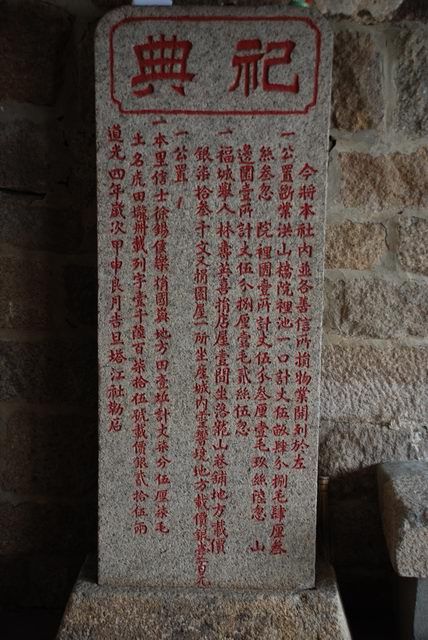 祀典
今將本社內並各善信所捐物業開列於左
一公置斷業洪山橋院裡池一口計丈伍畝肆分捌毛肆厘叁
絲叁忽 院裡園壹所計丈伍分叁厘壹毛玖絲陸忽 山
邊園壹所計丈伍分捌厘壹毛貳絲伍忽
一福城舉人林壽喜捐店屋壹間坐落乾山巷鋪地方載價
銀柒拾叁千文又捐園屋一所坐產城內壹境地方載價銀壹百元
一公置
一本里信士徐錫侯樂捐國嶺地方田壹坵計丈柒分伍厘柒毛
土名虎田墘冊載列字壹千陸百柒拾伍號載價銀貳拾伍兩
道光四年歲次甲申良月吉旦塔江社勒石